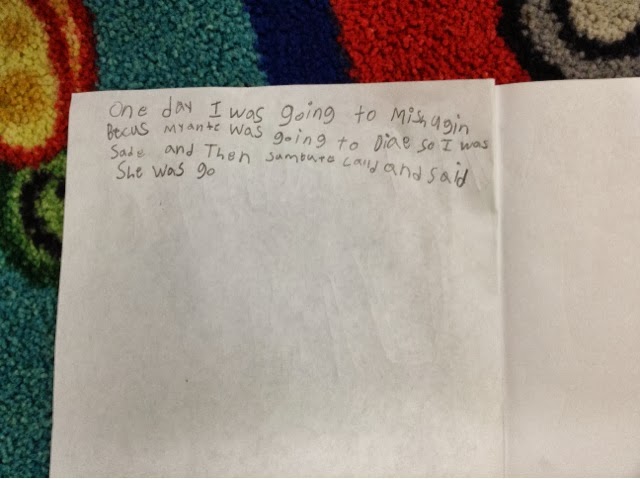 One day I was going to Mishugin
Becus Myante was going to Diae so I was
Sade and Then sambute calld and said
She was go